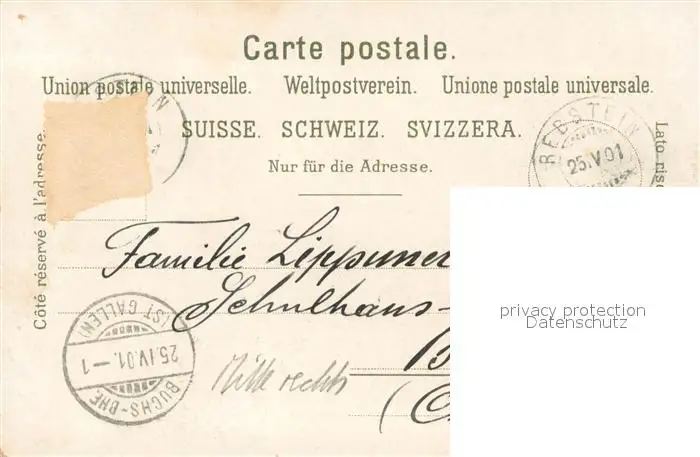 Carte postale.
Union postale universelle. Weltpostverein. Unione postale universale.
SUISSE. SCHWEIZ. SVIZZERA.
Nur für die Adresse.
Côté réservé à l'adresse.
REBSTEIN
25.IV.01
Familie Lippuner
Schulhaus-
privacy protection
Datenschutz
BUCHS-BHF. (ST GALLEN)
25.IV.01.-1
Mitte rechts